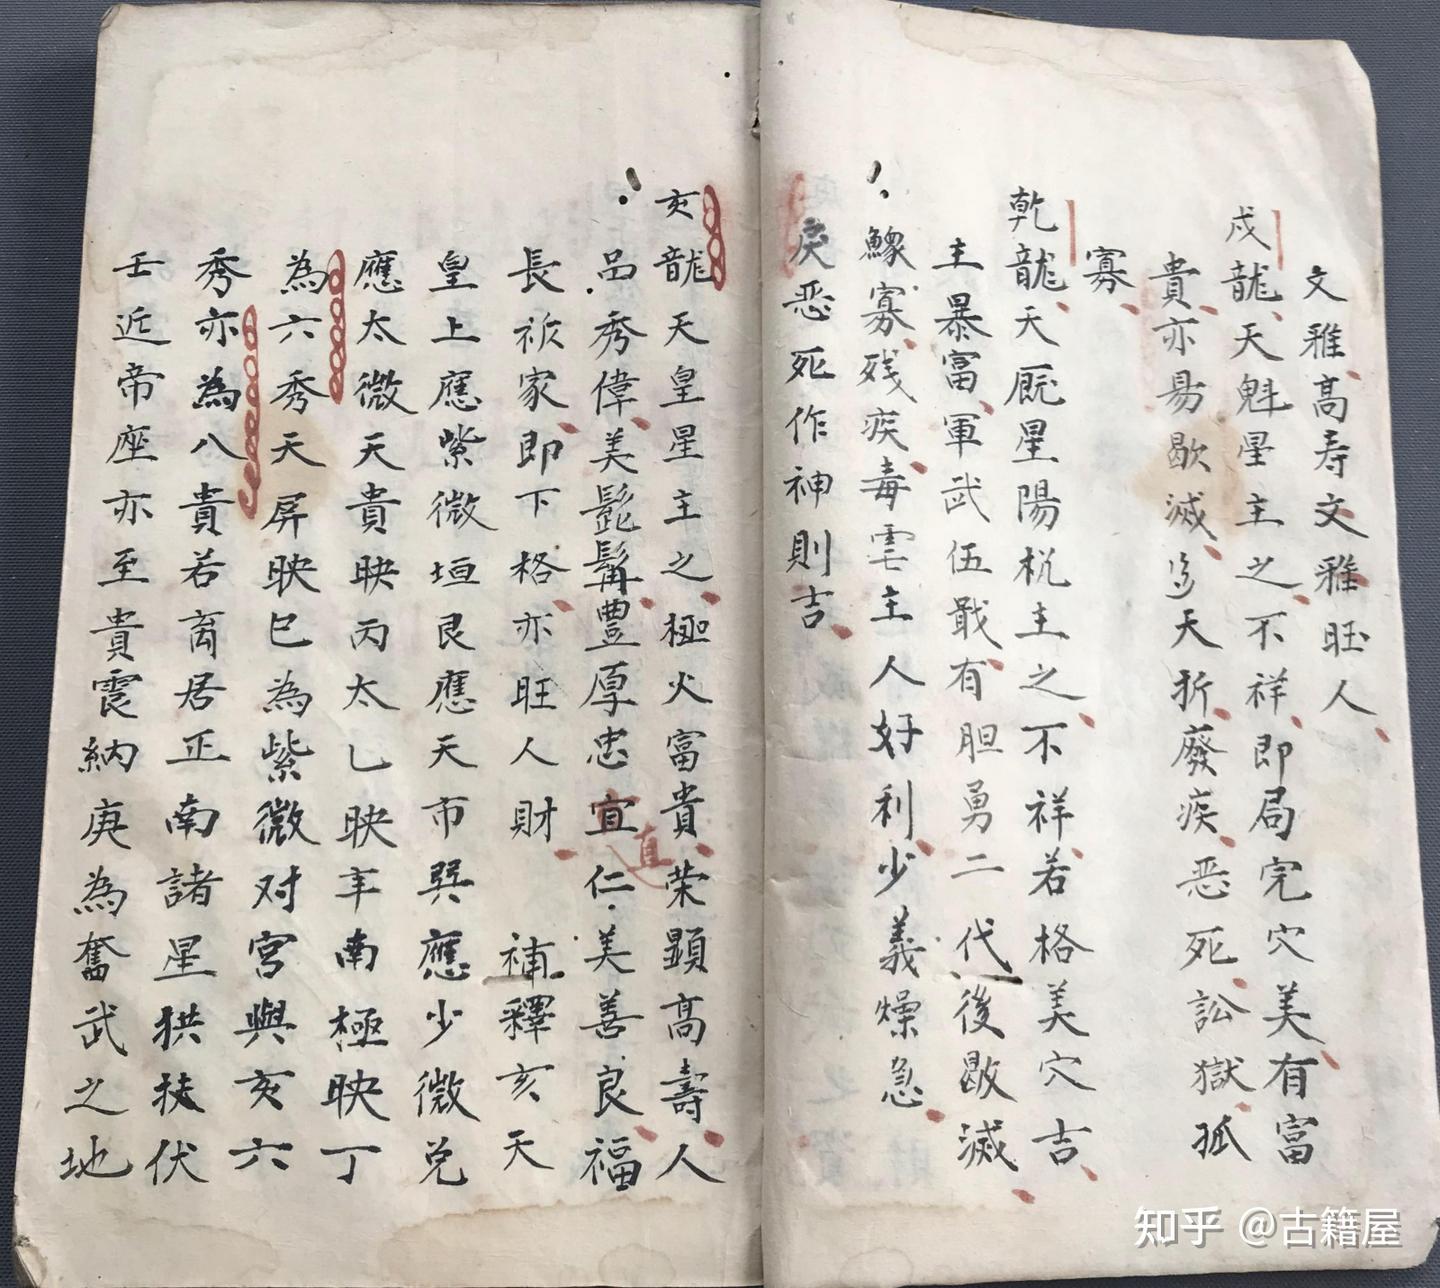 文雅高寿文雅旺人
戌龍天魁星主之不祥即局完穴美有富
貴亦易歇滅多夭折廢疾恶死訟獄孤
寡
乾龍天厩星陽枕主之不祥若格美穴吉
主暴富軍武伍戢有胆勇二代後歇滅
鰥寡残疾毒雲主人好利少義燥急
戾恶死作神則吉
亥龍天皇星主之極火富貴荣顕高壽人
品秀偉美髭髯豊厚忠宜仁美善良福
直
長袱家即下格亦旺人財 補釋亥天
皇上應紫微垣艮應天市巽應少微兌
應太微天貴映丙太乙映辛南極映丁
為六秀天屏映巳為紫微对宮與亥六
秀亦為八貴若离居正南諸星拱扶伏
壬近帝座亦至貴震納庚為奮武之地
知乎 @古籍屋